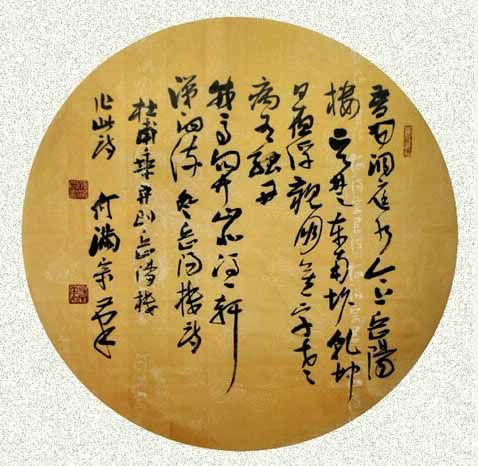 昔闻洞庭水今上岳陽
楼吴楚东南坼乾坤
日夜浮親朋無一字老
病有孤舟
戎马关山北凭轩
涕泗流 登岳阳楼诗
杜甫乘舟到岳陽楼
作此诗
何满宗书